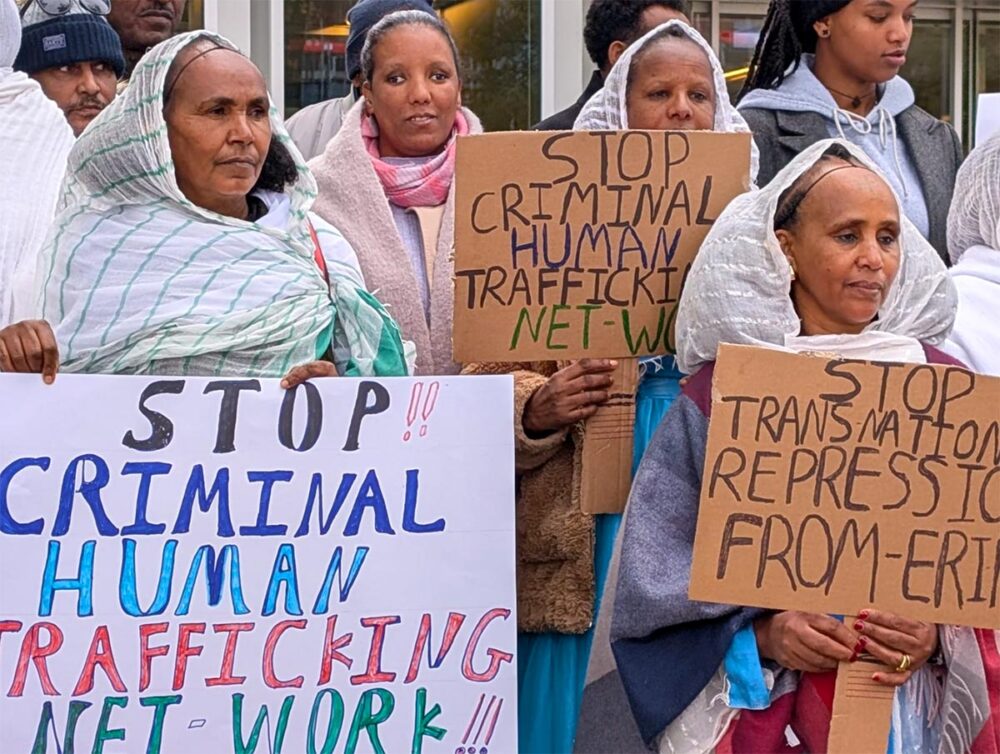 STOP!!
CRIMINAL
HUMAN
TRAFFICKING
NET-WORK!!!
STOP
CRIMINAL
HUMAN
TRAFFICKI
NET-WO
STOP
TRANS-NATION
REPRESSIO
FROM-ERI